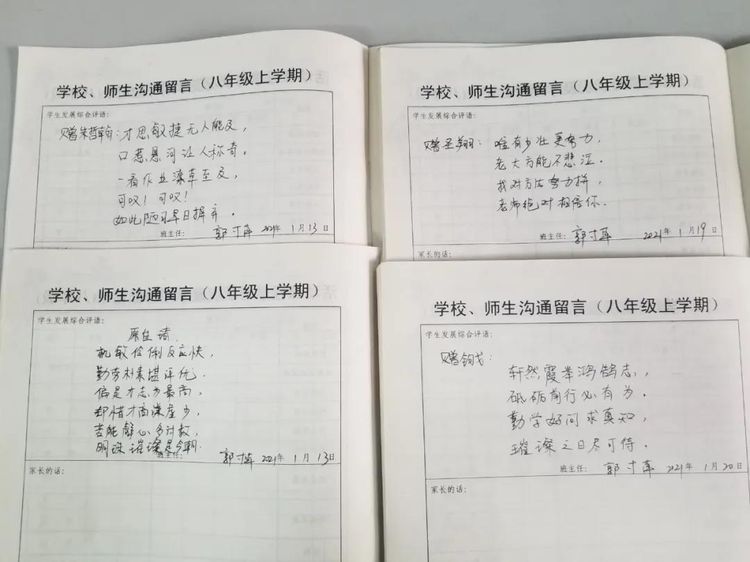 学校、师生沟通留言（八年级上学期）
学生发展综合评语：
赠朱哲翰：才思敏捷无人能及，
口若悬河让人称奇。
一看作业潦草至及，
可叹！可叹！
如此陋习早日摒弃。
班主任： 郭寸萍 2021年 1月13日
学校、师生沟通留言（八年级上学期）
学生发展综合评语：
赠圣翔：唯有少壮更努力，
老大方能不悲泣。
找对方法努力拼，
老师绝对相信你。
班主任： 郭寸萍 2021年 1月19日
家长的话：
学校、师生沟通留言（八年级上学期）
学生发展综合评语：
机敏伶俐反应快，
勤劳朴素堪评优。
偏是才志步最高，
却惜才商深度少，
若能静心多计数，
明珠璀璨是今朝
班主任： 郭寸萍 2021年 1月13日
家长的话：
学校、师生沟通留言（八年级上学期）
学生发展综合评语：
赠钧戈：
轩然霞举鸿鹄志，
砥砺前行必有为。
勤学好问求真知，
璀璨之日尽可待。
班主任： 郭寸萍 2021年 1月20日
家长的话：